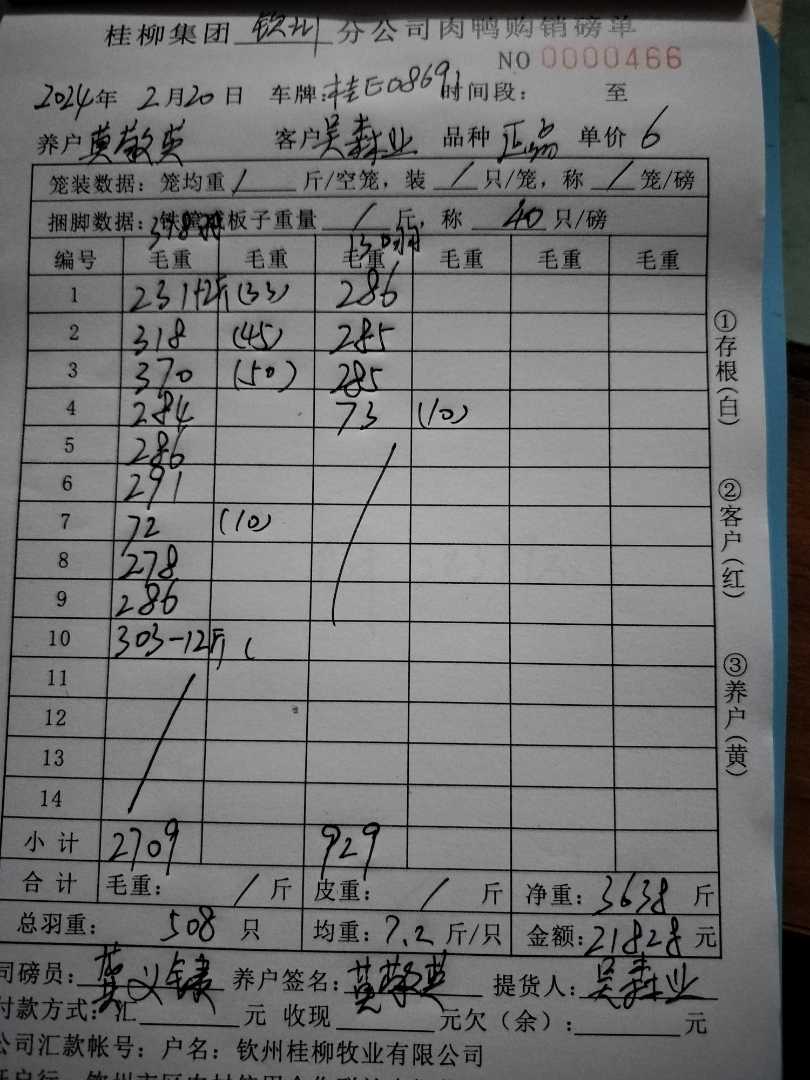 桂柳集团 钦州 分公司肉鸭购销磅单
NO 0000466
2024年 2月20日 车牌:桂E08691 时间段: 至
养户 黄敬英 客户 吴森业 品种 单价 6
笼装数据: 笼均重 / 斤/空笼, 装 / 只/笼, 称 / 笼/磅
捆脚数据: 板子重量 / 斤, 称 40 只/磅
378羽 130羽
编号 毛重 毛重 毛重 毛重 毛重 毛重
1 231+2斤 (33) 286
2 318 (45) 285
3 370 (50) 285
4 284 73 (10)
5 286
6 291
7 72 (10)
8 278
9 286
10 303-12斤 (
11
12
13
14
小计 2709 929
合计 毛重: / 斤 皮重: / 斤 净重: 3638 斤
总羽重: 508 只 均重: 7.2 斤/只 金额: 21828 元
司磅员: 黄义 养户签名: 黄敬英 提货人: 吴森业
付款方式: 汇 元 收现 元欠(余): 元
公司汇款帐号: 户名: 钦州桂柳牧业有限公司
①存根(白)
②客户(红)
③养户(黄)